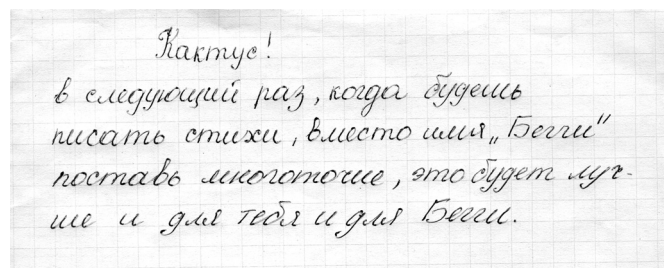 Кактус!
в следующий раз, когда будешь
писать стихи, вместо имя „Бегги"
поставь многоточие, это будет луч-
ше и для тебя и для Бегги.